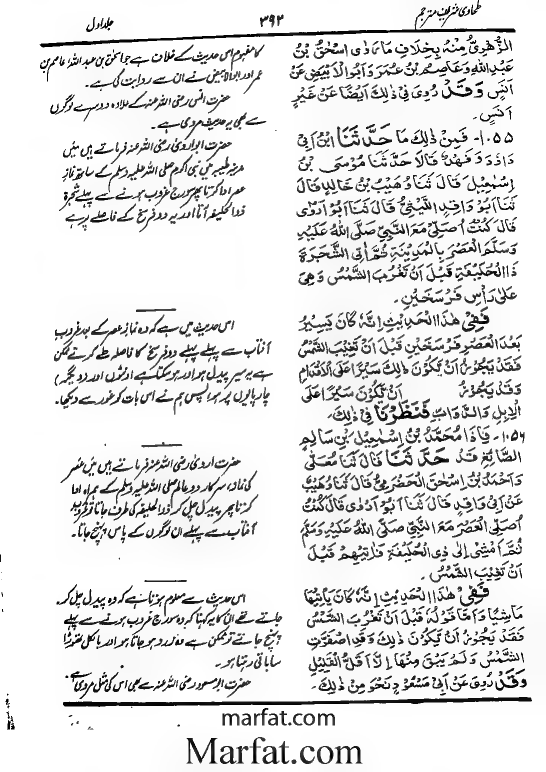 جلد اول
۳۹۲
طحاوی شریف مترجم
الزُّهْرِيُّ مِنْهُ بِخِلَافِ مَا رَوٰى اِسْحٰقُ بْنُ
عَبْدِ اللّٰهِ وَعَاصِمُ بْنُ عُمَرَ وَاَبُو الْاَبْيَضِ عَنْ
اَنَسٍ وَقَدْ رُوِيَ فِيْ ذٰلِكَ اَيْضًا عَنْ غَيْرِ
اَنَسٍ۔
۱۰۵۵- فَمِنْ ذٰلِكَ مَا حَدَّثَنَا ابْنُ اَبِيْ
دَاوٗدَ وَفَهْدٌ قَالَا حَدَّثَنَا مُوْسَى بْنُ
اِسْمٰعِيْلَ قَالَ ثَنَا وُهَيْبُ بْنُ خَالِدٍ قَالَ
ثَنَا اَبُوْ وَاقِدٍ اللَّيْثِيُّ قَالَ ثَنَا اَبُوْ اَرْوٰى
قَالَ كُنْتُ اُصَلِّيْ مَعَ النَّبِيِّ صَلَّى اللّٰهُ عَلَيْهِ
وَسَلَّمَ الْعَصْرَ بِالْمَدِيْنَةِ ثُمَّ اٰتِي الشَّجَرَةَ
ذَا الْحُلَيْفَةِ قَبْلَ اَنْ تَغْرُبَ الشَّمْسُ وَهِيَ
عَلٰى رَأْسِ فَرْسَخَيْنِ۔
فَفِيْ هٰذَا الْحَدِيْثِ اِنَّهٗ كَانَ يَسِيْرُ
بَعْدَ الْعَصْرِ فَرْسَخَيْنِ قَبْلَ اَنْ تَغِيْبَ الشَّمْسُ
فَقَدْ يَجُوْزُ اَنْ يَّكُوْنَ ذٰلِكَ سَيْرًا عَلَى الْاَقْدَامِ
وَقَدْ يَجُوْزُ اَنْ يَّكُوْنَ سَيْرًا عَلَى
الْاِبِلِ وَالدَّوَابِّ فَنَظَرْنَا فِيْ ذٰلِكَ۔
۱۰۵۶- فَاِذَا مُحَمَّدُ بْنُ اِسْمٰعِيْلَ بْنِ سَالِمٍ
الصَّائِغُ قَدْ حَدَّثَنَا قَالَ ثَنَا مُعَلّٰى
وَاَحْمَدُ بْنُ اِسْحٰقَ الْحَضْرَمِيُّ قَالَا ثَنَا وُهَيْبٌ
عَنْ اَبِيْ وَاقِدٍ قَالَ ثَنَا اَبُوْ اَرْوٰى قَالَ كُنْتُ
اُصَلِّي الْعَصْرَ مَعَ النَّبِيِّ صَلَّى اللّٰهُ عَلَيْهِ وَسَلَّمَ
ثُمَّ اَمْشِيْ اِلٰى ذِي الْحُلَيْفَةِ فَاٰتِيْهِمْ قَبْلَ
اَنْ تَغِيْبَ الشَّمْسُ۔
فَفِيْ هٰذَا الْحَدِيْثِ اِنَّهٗ كَانَ يَأْتِيْهَا
مَاشِيًا وَاَمَّا قَوْلُهٗ قَبْلَ اَنْ تَغْرُبَ الشَّمْسُ
فَقَدْ يَجُوْزُ اَنْ يَّكُوْنَ ذٰلِكَ وَقَدِ اصْفَرَّتِ
الشَّمْسُ وَلَمْ يَبْقَ مِنْهَا اِلَّا اَقَلُّ الْقَلِيْلِ
وَقَدْ رُوِيَ عَنْ اَبِيْ مَسْعُوْدٍ نَحْوٌ مِّنْ ذٰلِكَ۔
کا مفہوم اس حدیث کے خلاف ہے جو اسحٰق بن عبداللہ، عاصم بن
عمر اور ابوالابیض نے ان سے روایت کی ہے۔
حضرت انس رضی اللہ عنہ کے علاوہ دوسرے لوگوں
سے بھی یہ حدیث مروی ہے۔
حضرت ابو اروٰی رضی اللہ عنہ فرماتے ہیں میں
مدینہ طیبہ میں نبی اکرم صلی اللہ علیہ وسلم کے ساتھ نماز
عصر ادا کرتا پھر سورج غروب ہونے سے پہلے شجرۃ
ذوالحلیفہ آتا اور یہ دو فرسخ کے فاصلے پر ہے
اس حدیث میں ہے کہ وہ نماز عصر کے بعد غروب
آفتاب سے پہلے پہلے دو فرسخ کا فاصلہ طے کرتے لیکن
ہے یہ سیر پیدل ہو اور ہو سکتا ہے اونٹوں اور دیگر
چارپایوں پر ہو پس ہم نے اس بات کو غور سے دیکھا۔
حضرت اروٰی رضی اللہ عنہ فرماتے ہیں میں عصر
کی نماز، سرکار دو عالم صلی اللہ علیہ وسلم کے ہمراہ ادا
کرتا پھر پیدل چل کر ذوالحلیفہ کی طرف جاتا تو غروب
آفتاب سے پہلے ان لوگوں کے پاس پہنچ جاتا۔
اس حدیث سے معلوم ہوتا ہے کہ وہ پیدل چل کر
جاتے تھے ان کا یہ کہنا کہ وہ سورج غروب ہونے سے پہلے
پہنچ جاتے تو ممکن ہے وہ زرد ہو جاتا ہو اور بالکل تھوڑا
سا باقی رہتا ہو۔
حضرت ابو مسعود رضی اللہ عنہ سے بھی اس کی مثل مروی ہے۔
marfat.com
Marfat.com